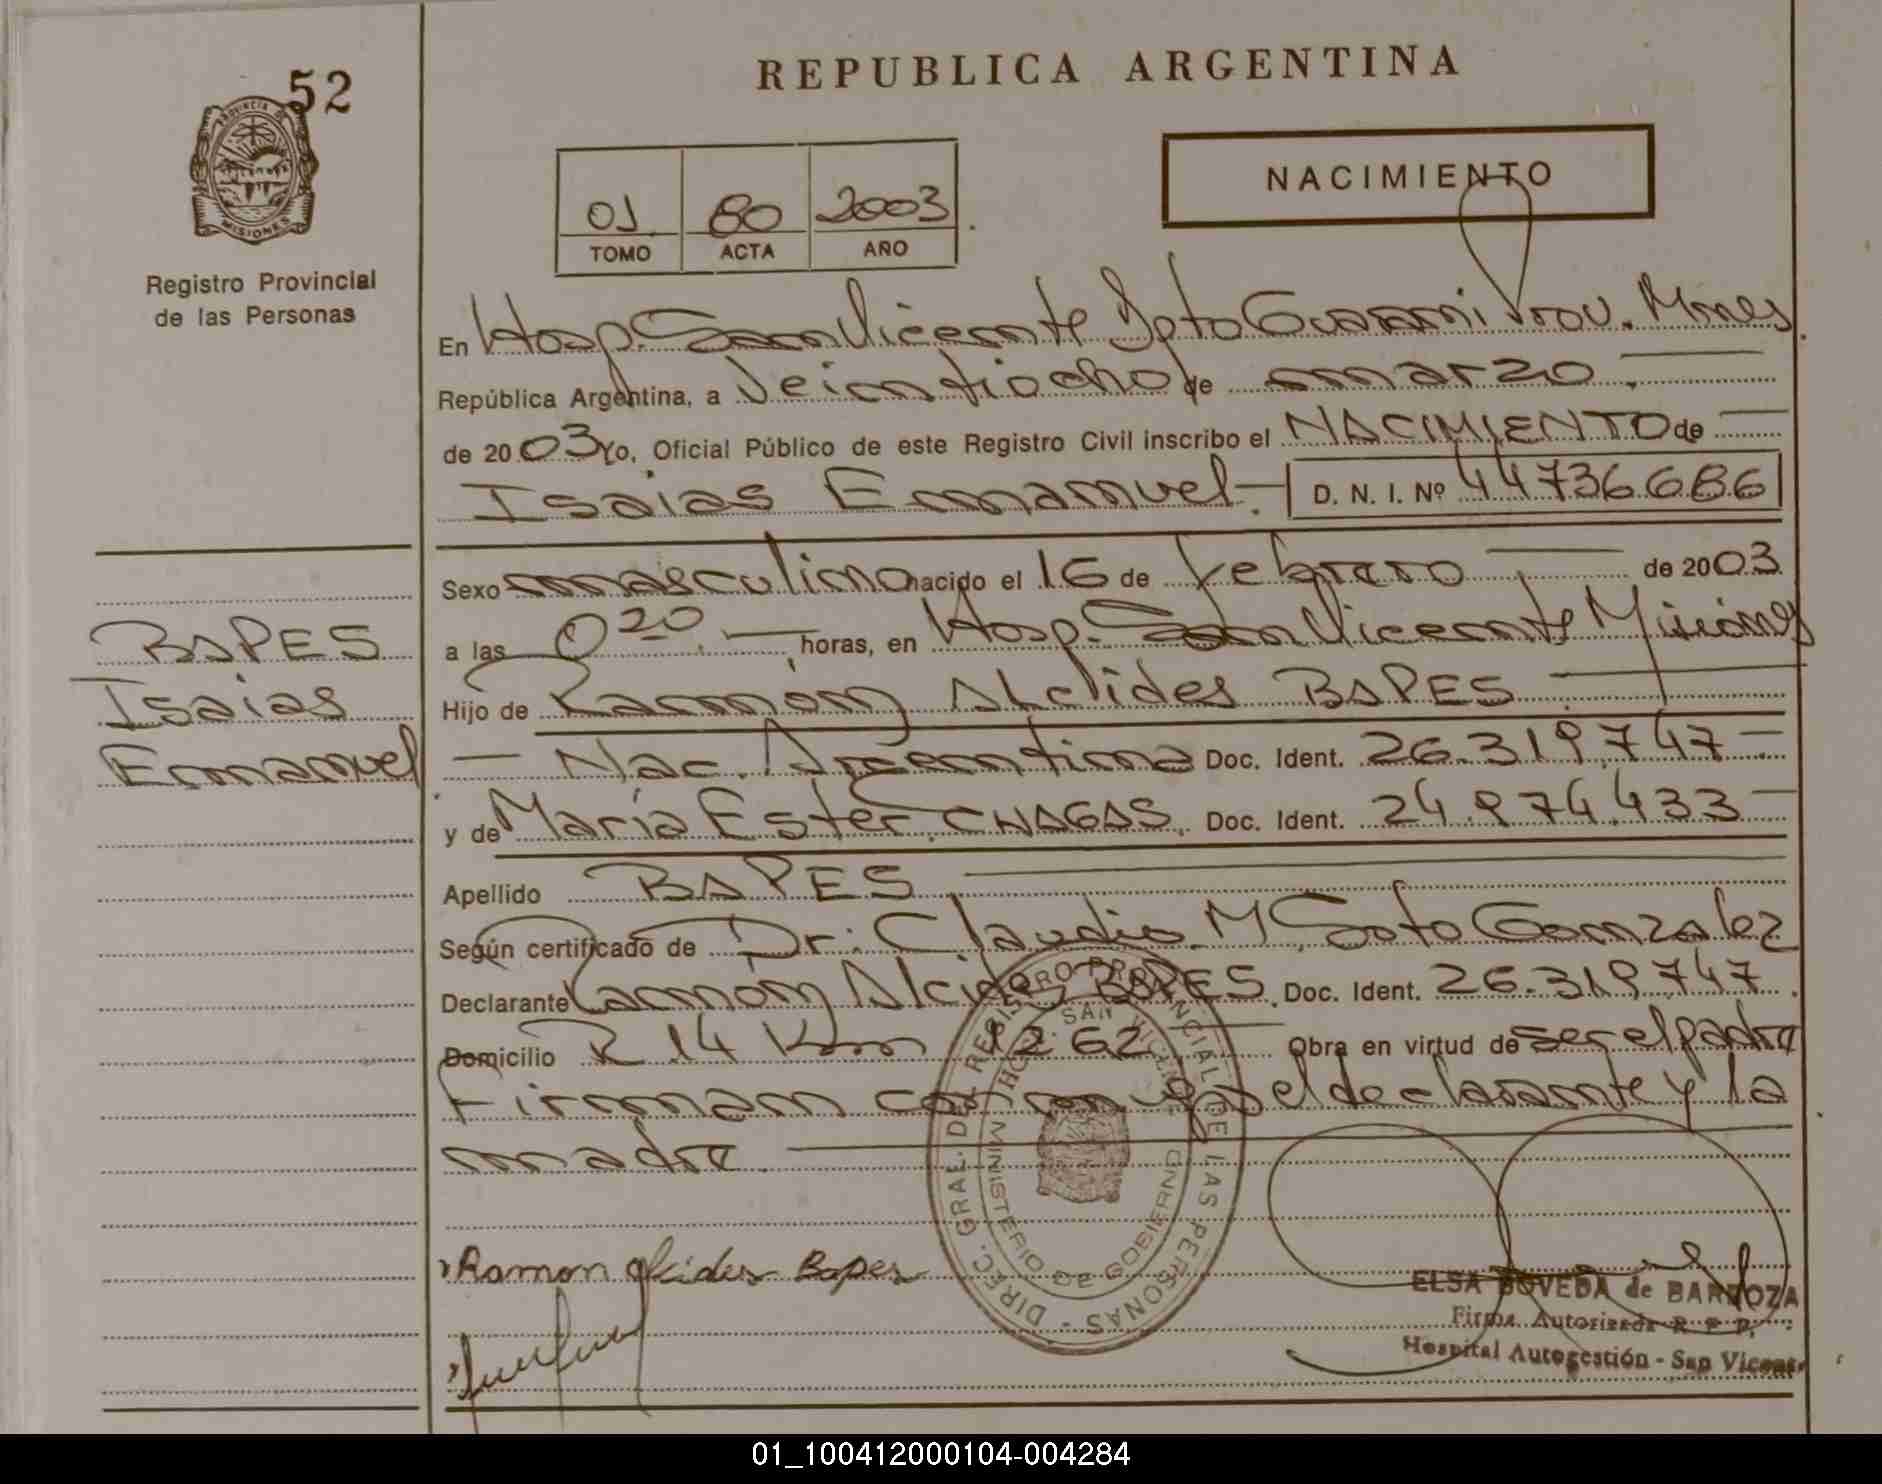 52
PROVINCIA DE
MISIONES
Registro Provincial
de las Personas
BAPES
Isaias
Emmanuel
REPUBLICA ARGENTINA
01 80 2003
TOMO ACTA AÑO
NACIMIENTO
En Hosp. San Vicente Dpto Guarani Prov. Mnes
República Argentina, a Veintiocho de marzo
de 2003 Yo, Oficial Público de este Registro Civil inscribo el NACIMIENTO de
Isaias Emmanuel D. N. I. Nº 44736686
Sexo masculino nacido el 16 de febrero de 2003
a las 0 20 horas, en Hosp. San Vicente Misiones
Hijo de Ramón Alcides BAPES
Nac. Argentina Doc. Ident. 26.319.747
y de María Ester CHAGAS Doc. Ident. 24.974.433
Apellido BAPES
Según certificado de Dr. Claudio M Soto Gonzalez
Declarante Ramón Alcides BAPES Doc. Ident. 26.319.747
Domicilio R 14 Km 1262 Obra en virtud de ser el padre
Firman conmigo el declarante y la
madre
DIREC. GRAL. DEL REGISTRO PROVINCIAL DE LAS PERSONAS
SAN VICENTE
MINISTERIO DE GOBIERNO
Ramon Alcides Bapes
ELSA BOVEDA de BARBOZA
Firma Autorizada R. P. P.
Hospital Autogestión - San Vicente
01_100412000104-004284